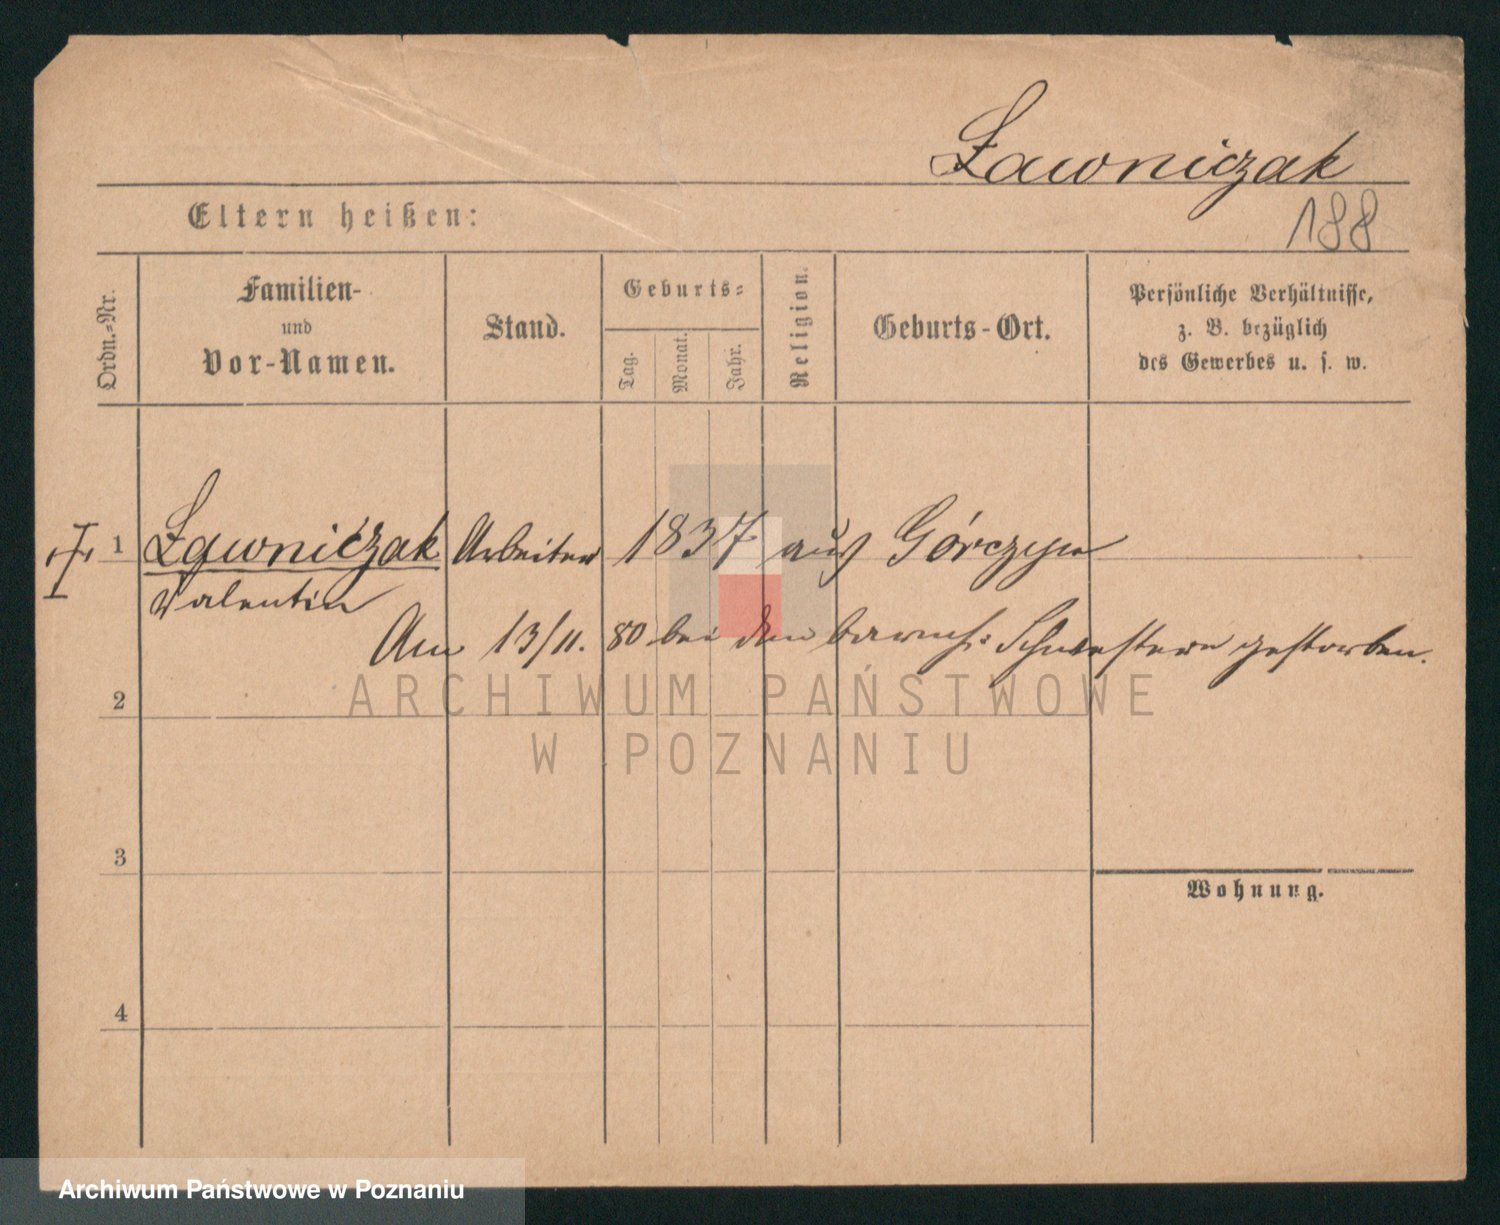 Ławniczak
188
Eltern heißen:
Ordn.-Nr.
Familien-
und
Vor-Namen.
Stand.
Geburts-
Tag.
Monat.
Jahr.
Religion.
Geburts-Ort.
Persönliche Verhältnisse,
z. B. bezüglich
des Gewerbes u. s. w.
1 Ławniczak Arbeiter 1837 aus Górczyn
Valentin
Am 13/11. 80 bei den barmh: Schwestern gestorben.
2
3
4
Wohnung.
ARCHIWUM PAŃSTWOWE
W POZNANIU
Archiwum Państwowe w Poznaniu